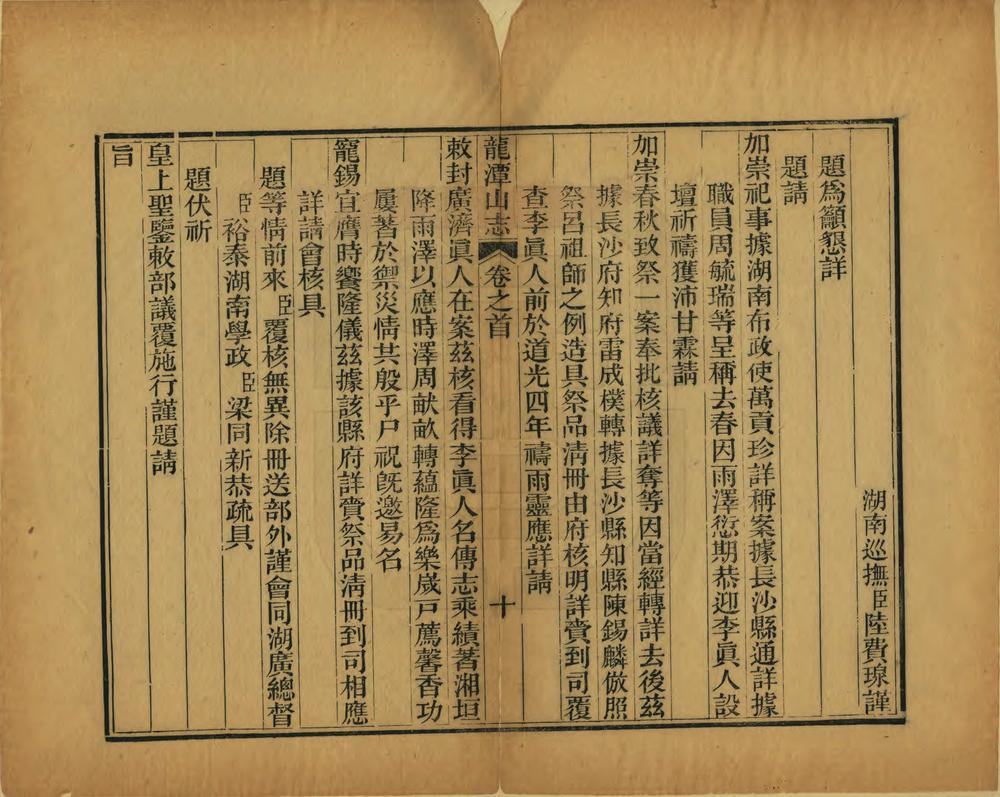 湖南巡撫臣陸費瑔謹
題為籲懇詳
題請
加崇祀事據湖南布政使萬貢珍詳稱案據長沙縣通詳據
職員周毓瑞等呈稱去春因雨澤愆期恭迎李眞人設
壇祈禱獲沛甘霖請
加崇春秋致祭一案奉批核議詳奪等因當經轉詳去後茲
據長沙府知府雷成樸轉據長沙縣知縣陳錫麟倣照
祭呂祖師之例造具祭品清冊由府核明詳賫到司覆
查李眞人前於道光四年禱雨靈應詳請
龍潭山志 卷之首 十
敕封廣濟眞人在案茲核看得李眞人名傳志乘績著湘垣
降雨澤以應時澤周献畝轉蘊隆為樂歲戸薦馨香功
屢著於禦災情共殷乎尸祝旣邀易名
寵錫宜膺時饗隆儀茲據該縣府詳賫祭品清冊到司相應
詳請會核具
題等情前來臣覆核無異除冊送部外謹會同湖廣總督
臣裕泰湖南學政臣梁同新恭疏具
題伏祈
皇上聖鑒敕部議覆施行謹題請
旨